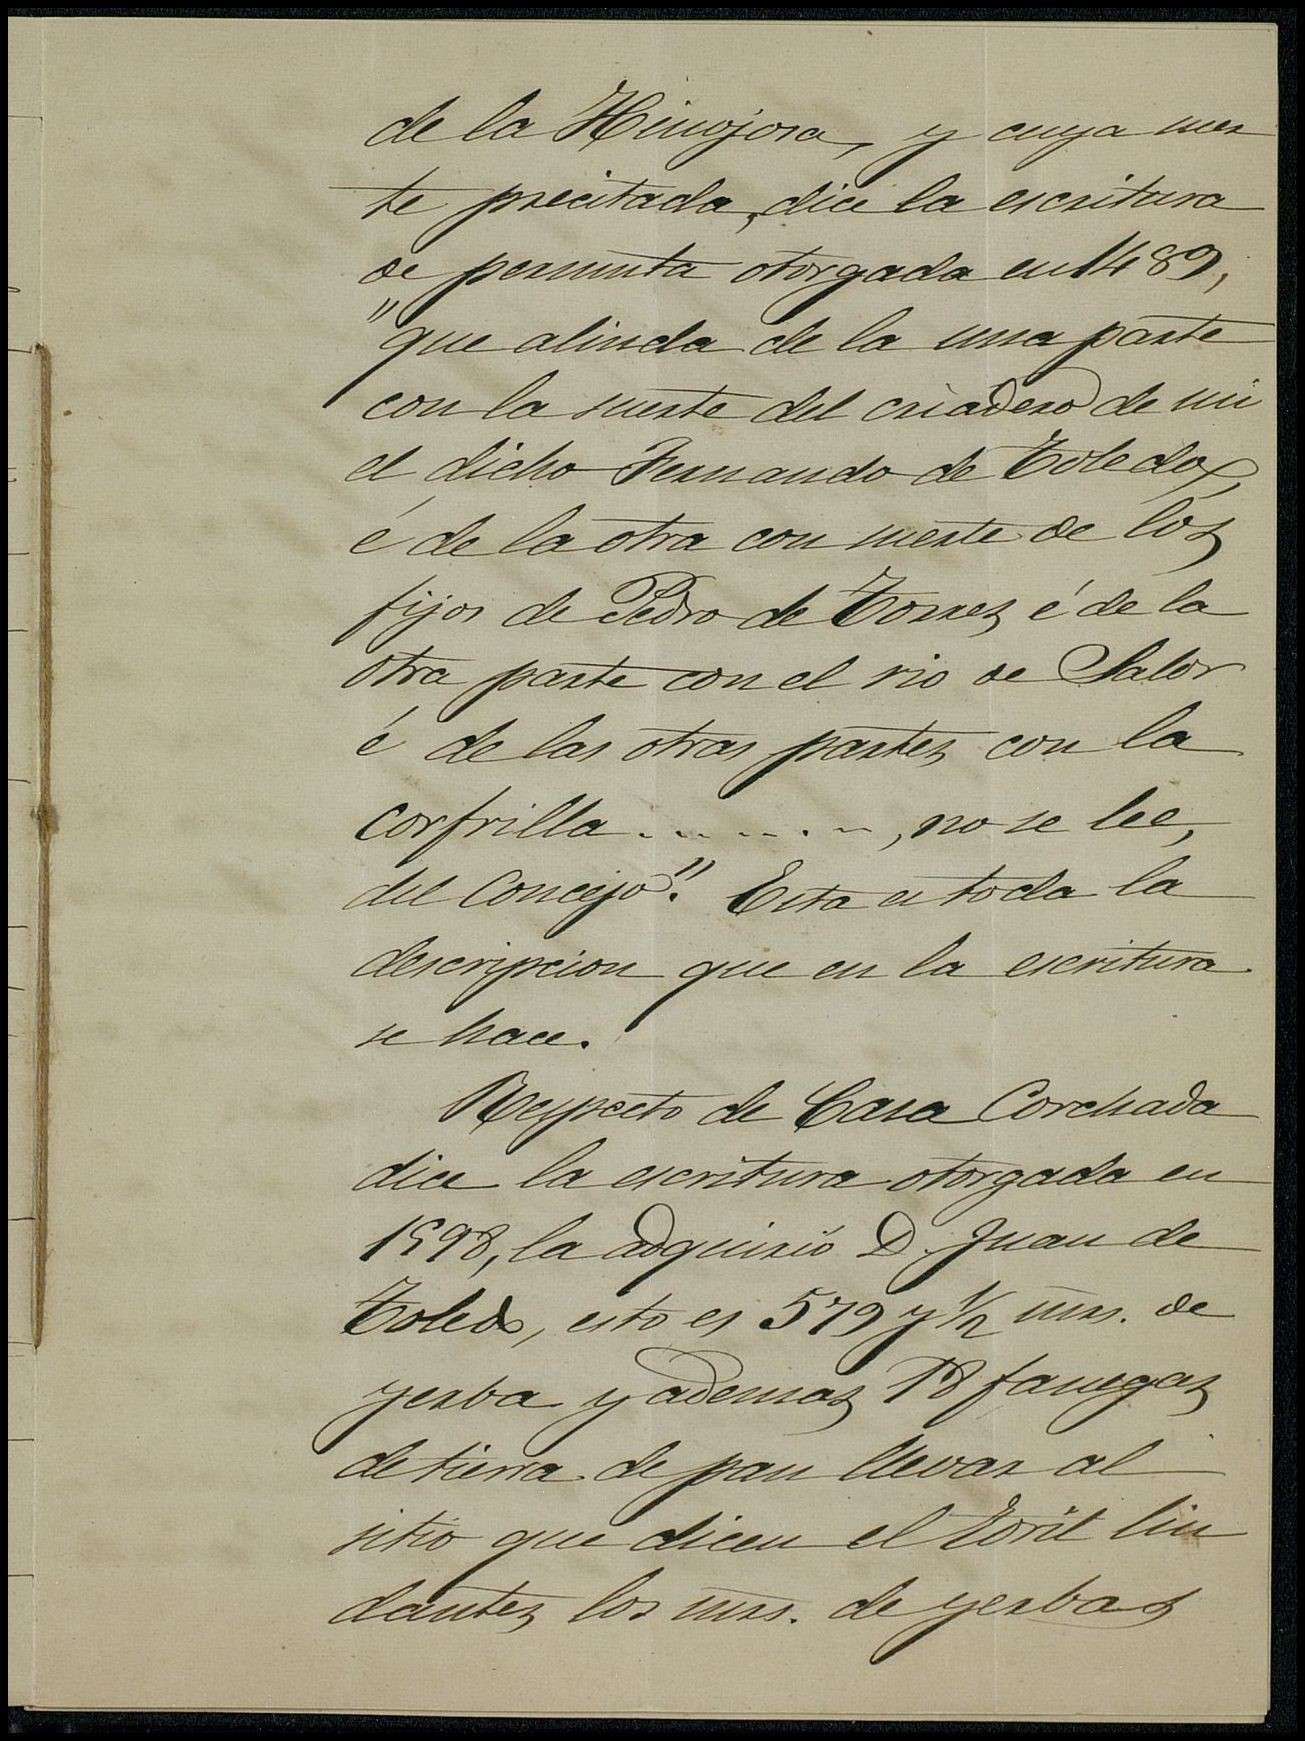 de la Hinojosa, y cuya suer
te precitada, dice la escritura
de permuta otorgada en 1489,
"que alinda de la una parte
con la suerte del criadero de mi
el dicho Fernando de Toledo,
é de la otra con suerte de los
fijos de Pedro de Torres é de la
otra parte con el rio de Salor
é de las otras partes con la
corfrilla . . . . . . , no se lee,
del Concejo". Esta es toda la
descripcion que en la escritura
se hace.
Respecto de Casa Corchada
dice la escritura otorgada en
1598, la adquirió D. Juan de
Toledo, esto es 579 y 1/2 mrs. de
yerba y ademas 18 fanegas
de tierra de pan llevar al
sitio que dicen el Toril lin
dantes los mrs. de yerba y